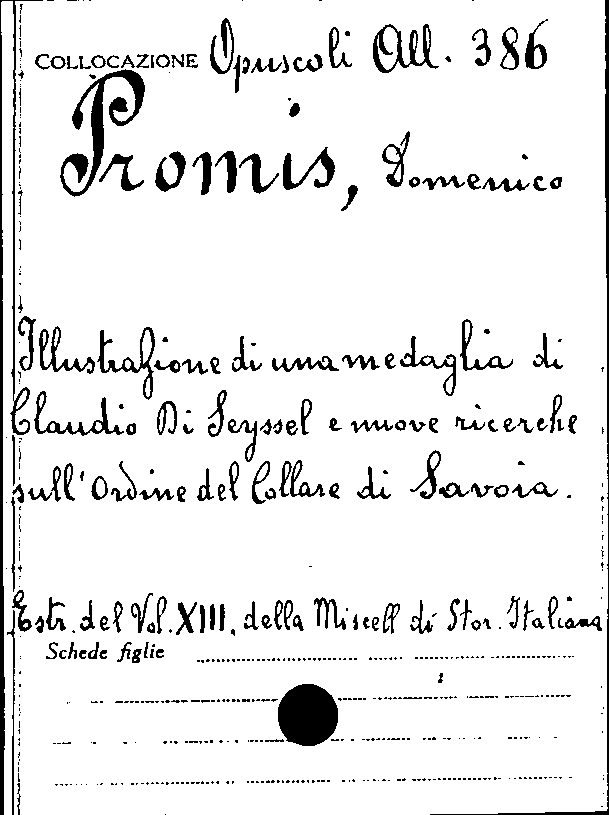 COLLOCAZIONE Opuscoli All. 386
Promis, Domenico
Illustrazione di una medaglia di
Claudio Di Seyssel e nuove ricerche
sull'Ordine del Collare di Savoia.
Estr. del Vol. XIII. della Miscell di Stor. Italiana
Schede figlie